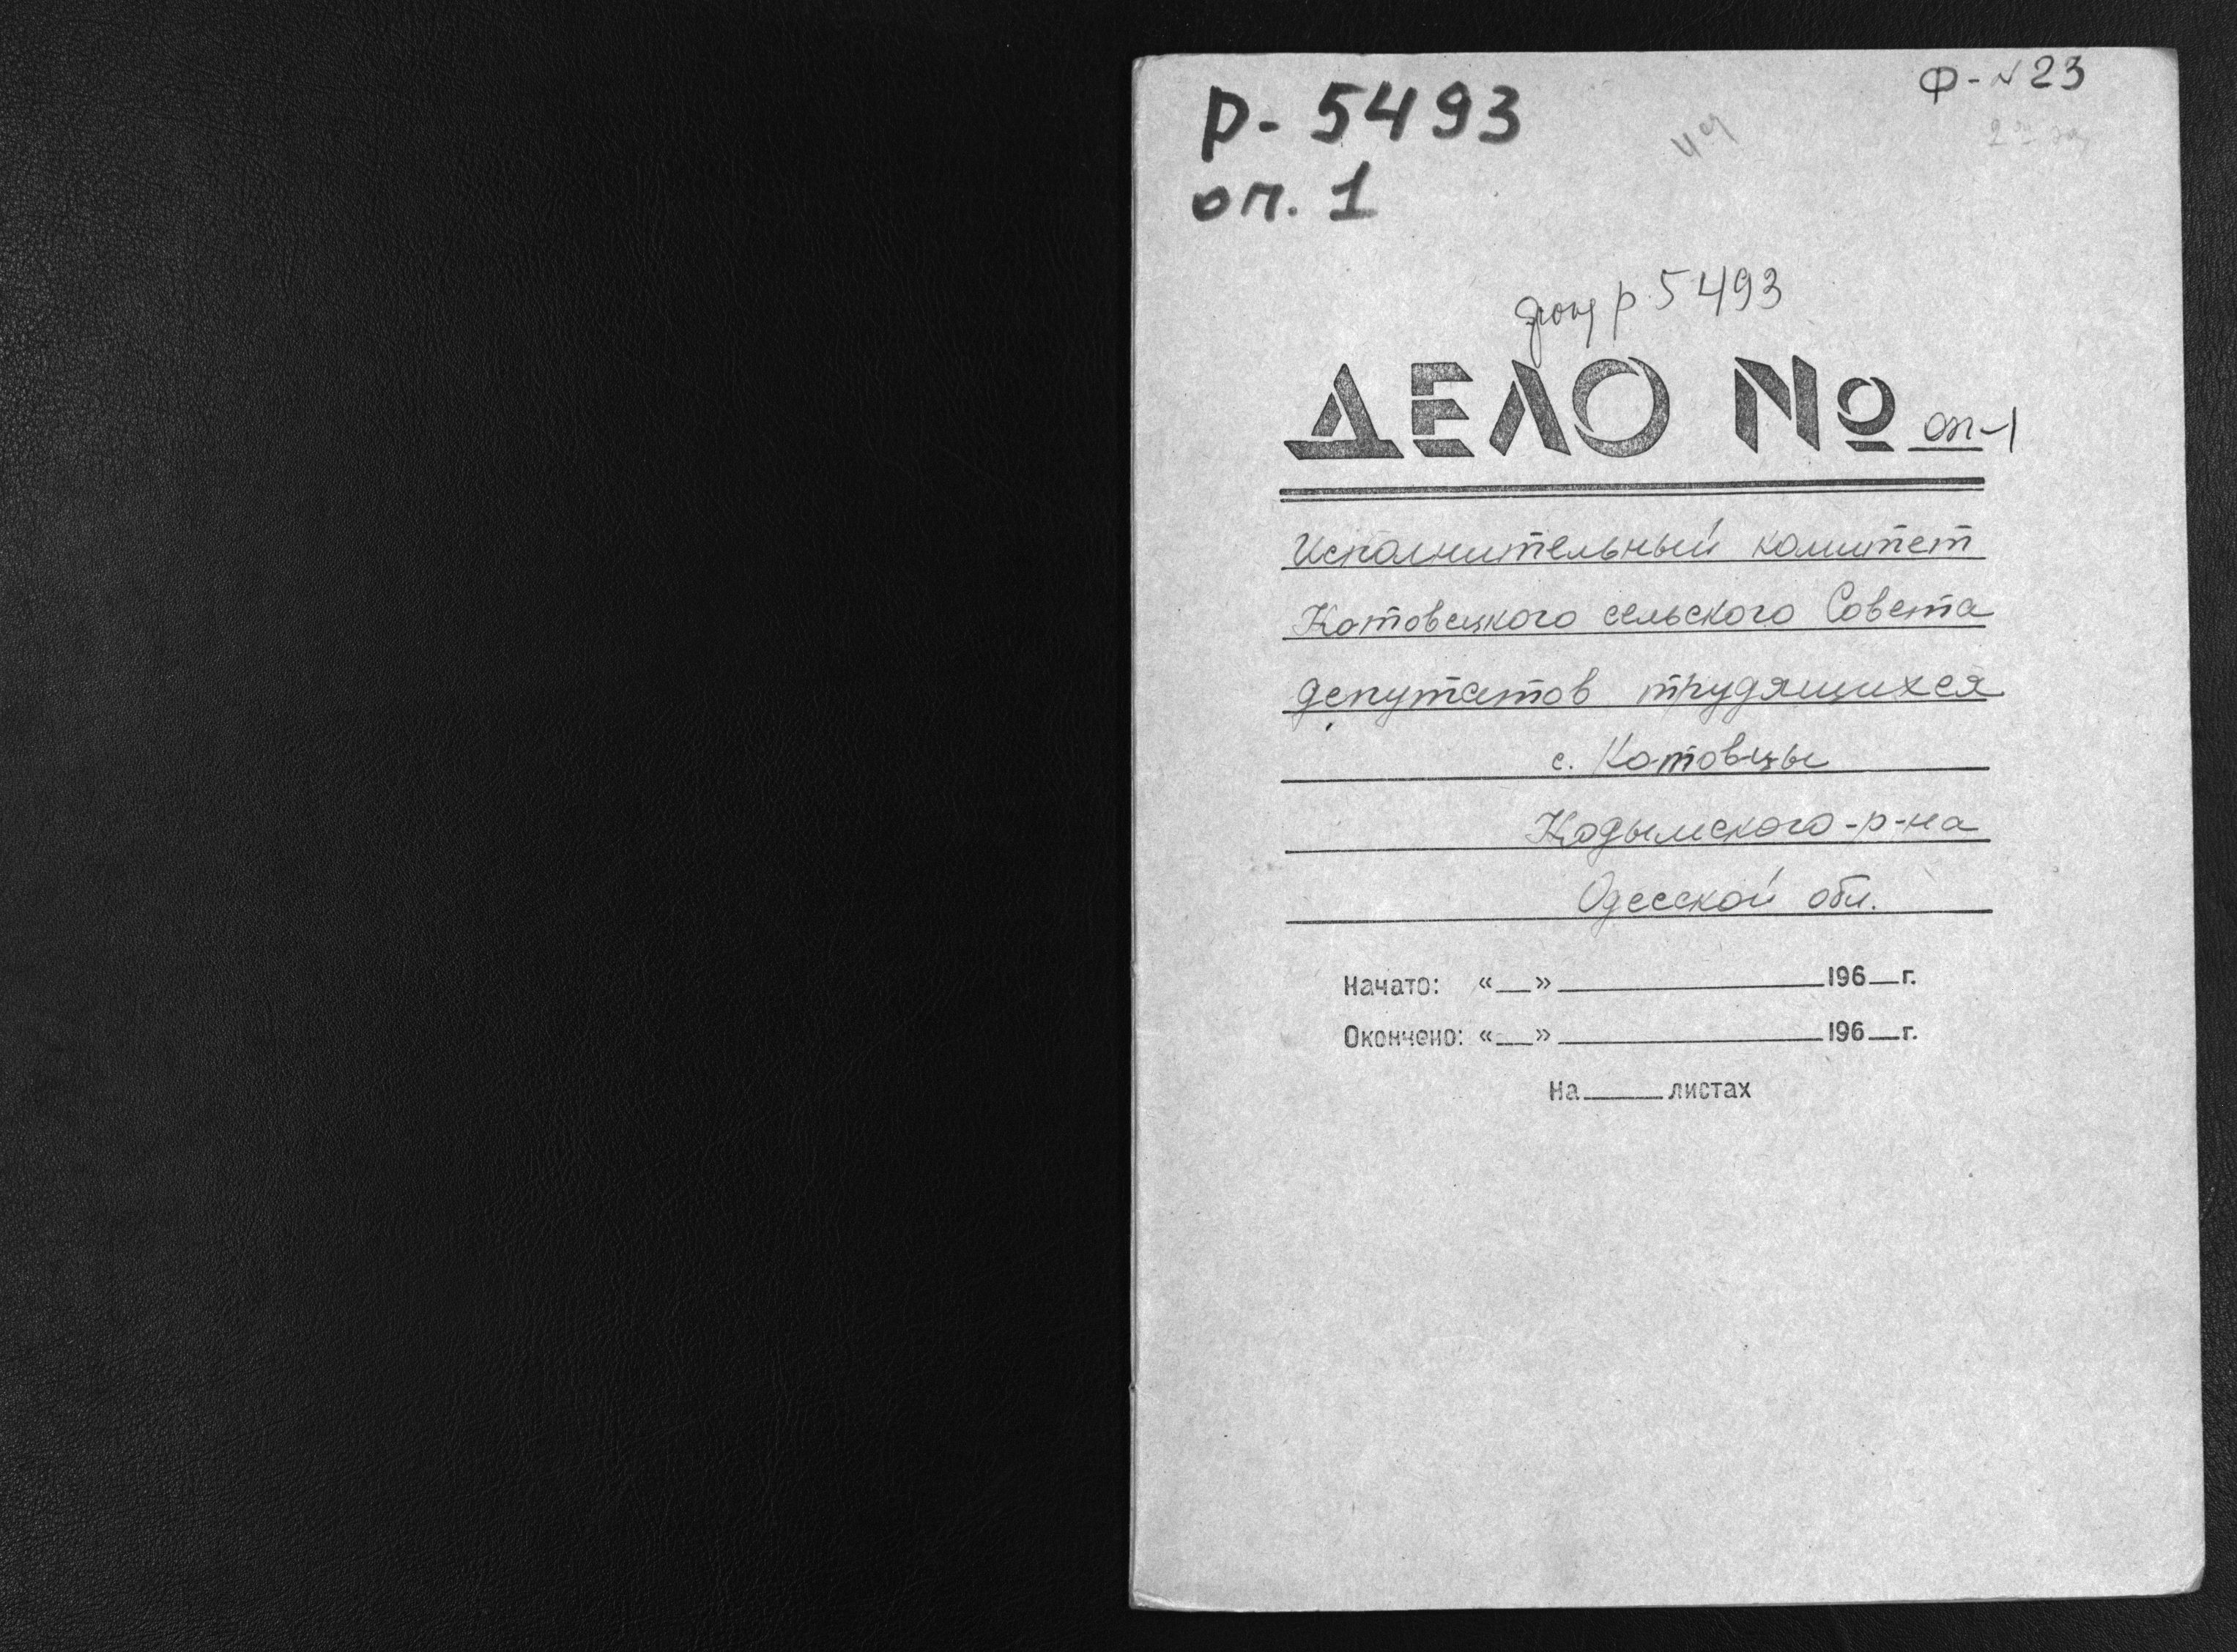 Ф-№23
Р-5493
оп. 1
фонд р 5493
ДЕЛО № оп-1
Исполнительный комитет
Котовецкого сельского Совета
депутатов трудящихся
с. Котовцы
Кодымского-р-на
Одесской обл.
Начато: «__» ____ 196__г.
Окончено: «__» ____ 196__г.
На ____ листах